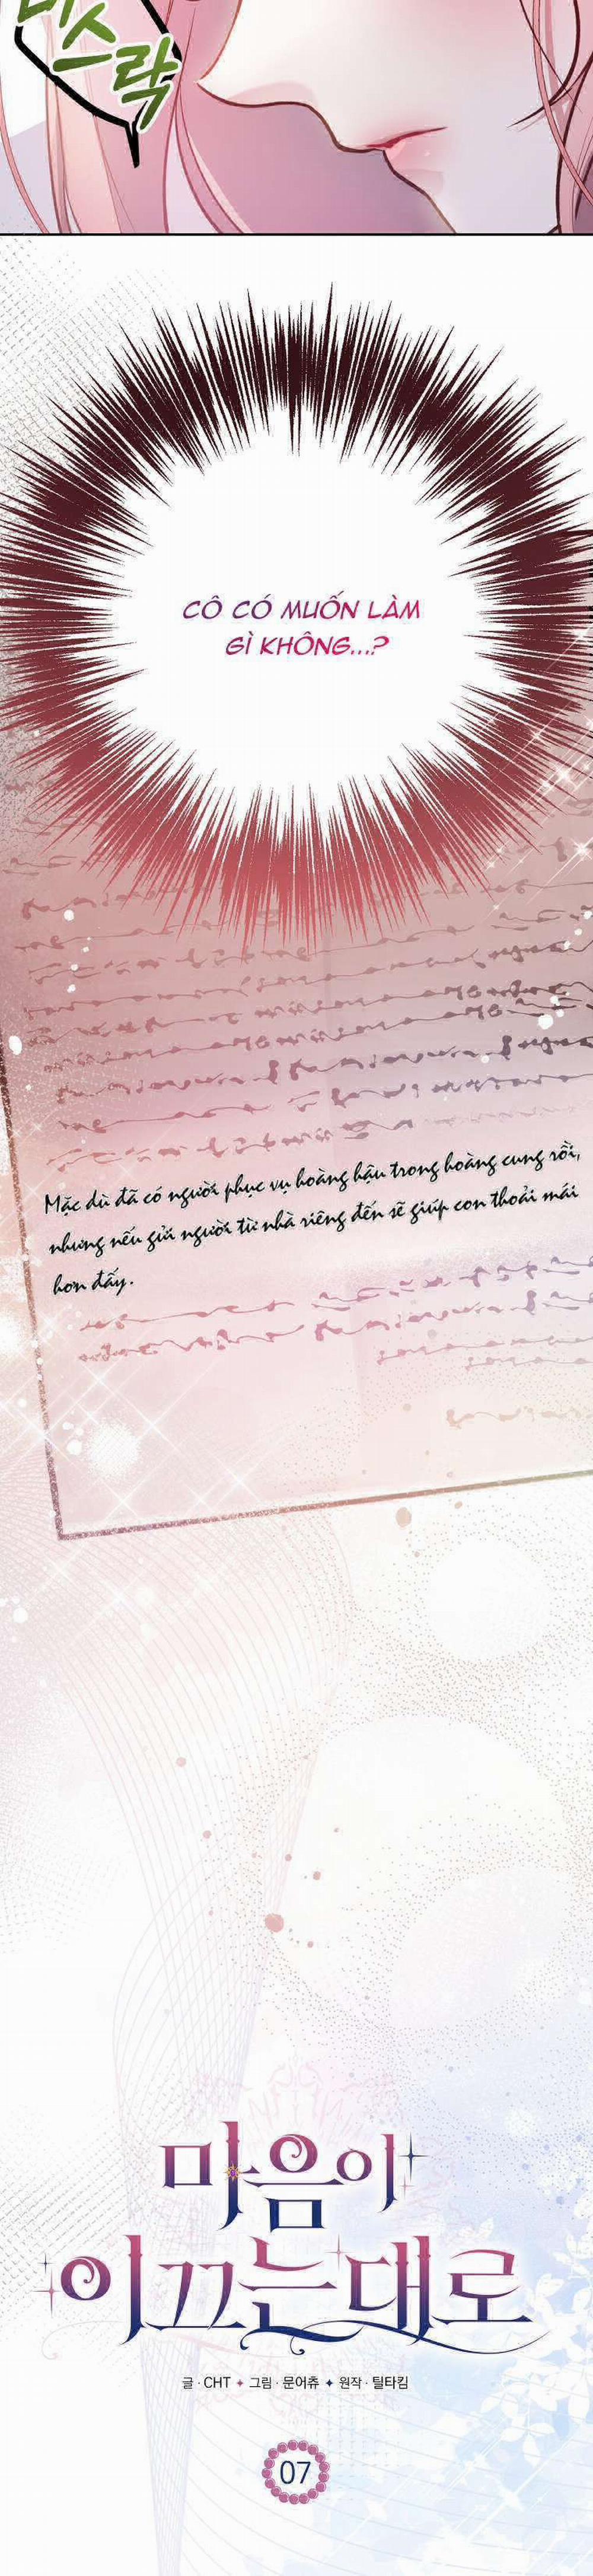 바스락
CÔ CÓ MUỐN LÀM
GÌ KHÔNG...?
Mặc dù đã có người phục vụ hoàng hậu trong hoàng cung rồi,
nhưng nếu gửi người từ nhà riêng đến sẽ giúp con thoải mái
hơn đấy.
마음이
이끄는 대로
글 · CHT ✦ 그림 · 문어츄 ✦ 원작 · 틸타킴
07